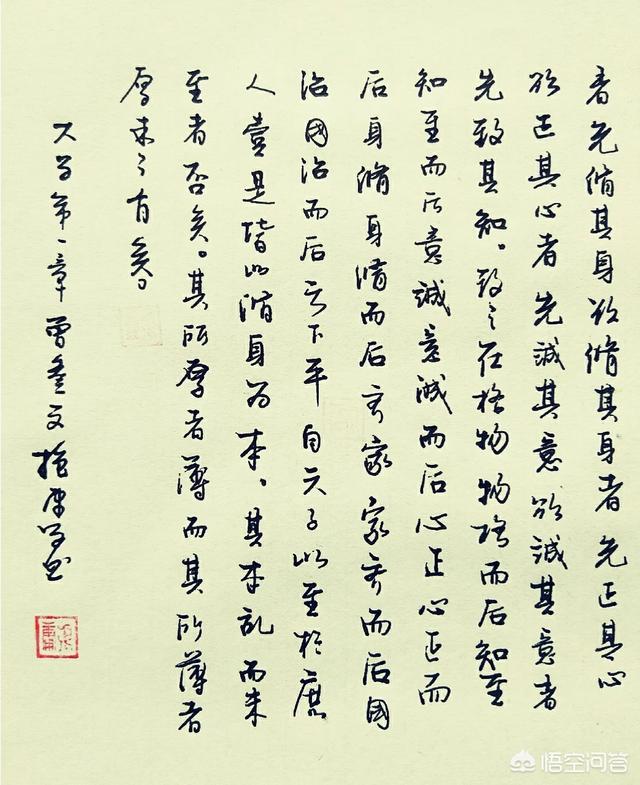 者先脩其身欲脩其身者先正其心
欲正其心者先誠其意欲誠其意者
先致其知。致之在格物物格而后知至
知至而后意誠意誠而后心正心正而
后身脩身脩而后齐家家齐而后國
治國治而后天下平自天子以至於庶
人壹是皆以脩身为本。其本乱而末
至者否矣。其所厚者薄而其所薄者
厚未之有矣。
大学第一章曾参文
悟空问答